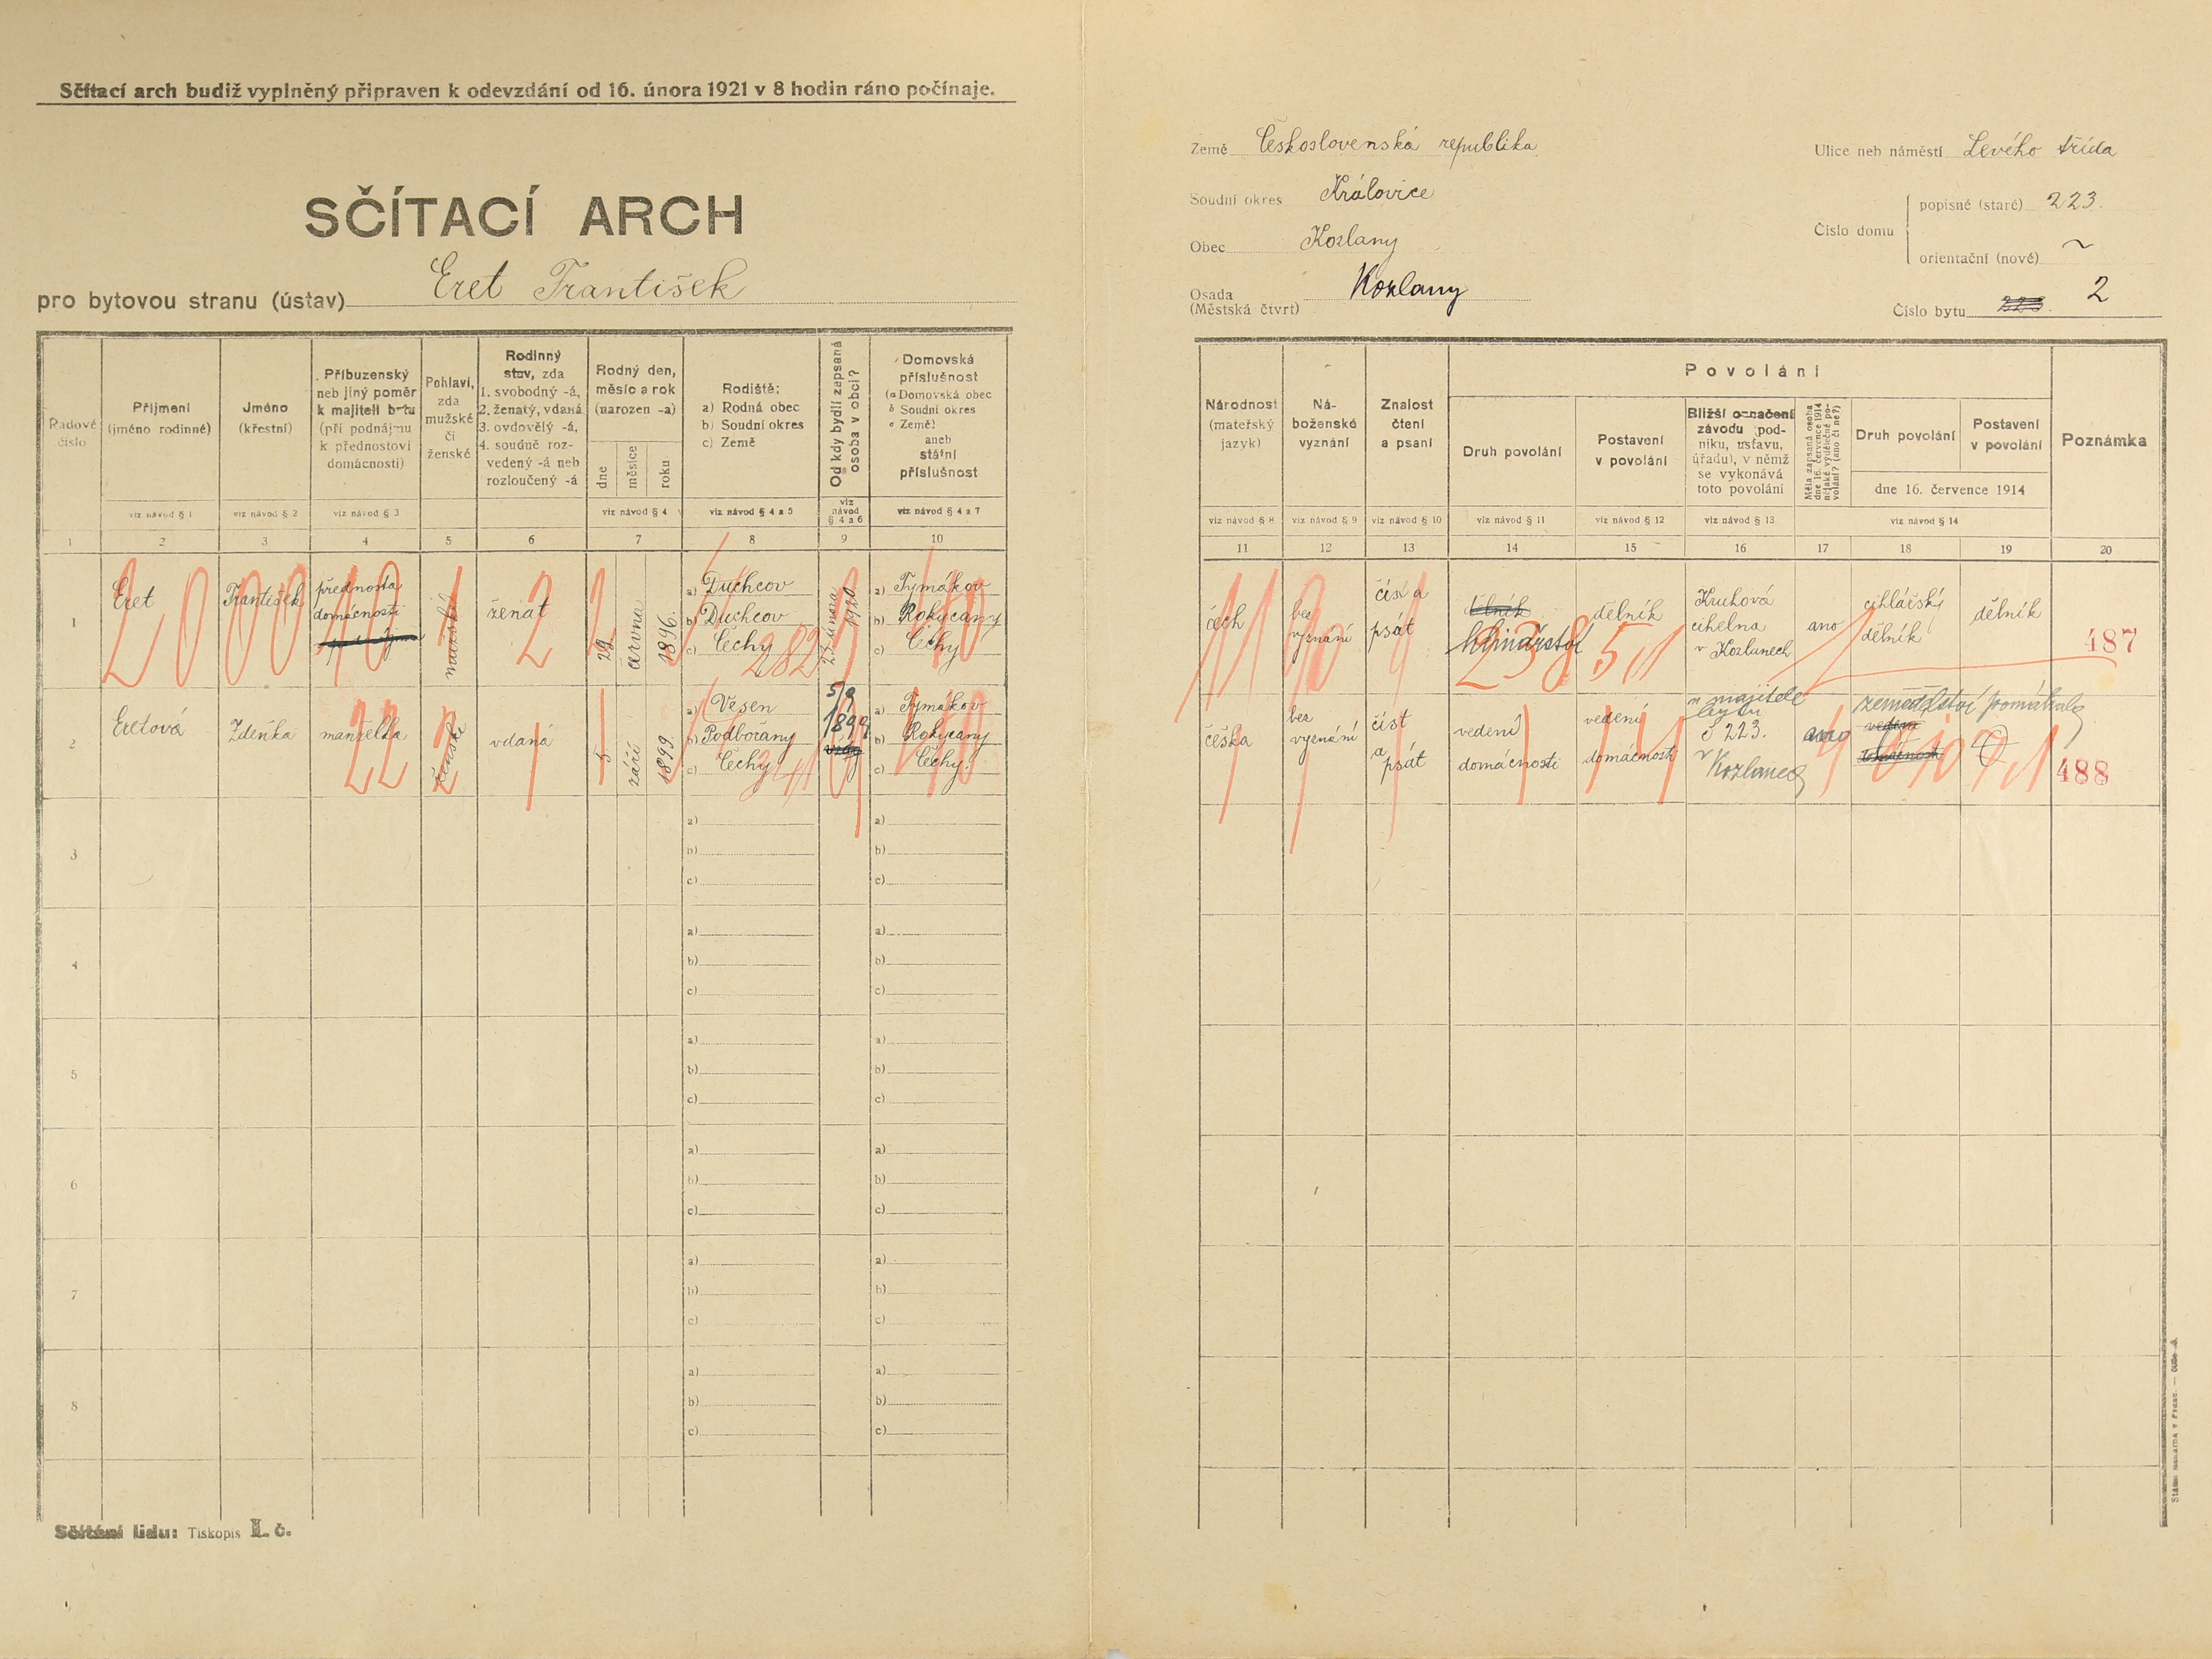 Sčítací arch budiž vyplněný připraven k odevzdání od 16. února 1921 v 8 hodin ráno počínaje.
SČÍTACÍ ARCH
pro bytovou stranu (ústav) Eret František
Země Československá republika
Soudní okres Královice
Obec Kozlany
Osada Kozlany
(Městská čtvrť)
Ulice neb náměstí Levého třída
Číslo domu
popisné (staré) 223.
orientační (nové) ~
Číslo bytu 223. 2
Řadové číslo
1
Příjmení (jméno rodinné)
viz návod § 1
2
Jméno (křestní)
viz návod § 2
3
Příbuzenský neb jiný poměr k majiteli bytu (při podnájmu k přednostovi domácnosti)
viz návod § 3
4
Pohlaví, zda mužské či ženské
5
Rodinný stav, zda
1. svobodný -á,
2. ženatý, vdaná
3. ovdovělý -á,
4. soudně rozvedený -á neb rozloučený -á
6
Rodný den, měsíc a rok (narozen -a)
dne
měsíce
roku
viz návod § 4
7
Rodiště:
a) Rodná obec
b) Soudní okres
c) Země
viz návod § 4 a 5
8
Od kdy bydlí zapsaná osoba v obci?
viz návod § 4 a 6
9
Domovská příslušnost
(a Domovská obec
b Soudní okres
c Země)
aneb
státní příslušnost
viz návod § 4 a 7
10
Národnost (mateřský jazyk)
viz návod § 8
11
Náboženské vyznání
viz návod § 9
12
Znalost čtení a psaní
viz návod § 10
13
Povolání
Druh povolání
viz návod § 11
14
Postavení v povolání
viz návod § 12
15
Bližší označení závodu (podniku, ústavu, úřadu), v němž se vykonává toto povolání
viz návod § 13
16
Měla zapsaná osoba dne 16. července 1914 nějaké výdělečné povolání? (ano či ne?)
17
Druh povolání
18
Postavení v povolání
19
dne 16. července 1914
viz návod § 14
Poznámka
20
1
Eret
František
přednosta
domácnosti
mužské
ženat
29
června
1896.
a) Duchcov
b) Duchcov
c) Čechy
února
1920
a) Tymákov
b) Rokycany
c) Čechy
čech
bez
vyznání
číst a
psát
dělník
Kruhová
cihelna
v Kozlanech
ano
cihlářský
dělník
dělník
487
2
Eretová
Zdeňka
manželka
ženské
vdaná
5
září
1899.
a) Vesen
b) Podbořany
c) Čechy
5/9
1899
a) Tymákov
b) Rokycany
c) Čechy.
češka
bez
vyznání
číst
a
psát
vedení
domácnosti
vedení
domácnosti
u majitele
bytu
č 223.
v
Kozlanech
ano
zemědělství pomáhala
488
3
a)
b)
c)
a)
b)
c)
4
a)
b)
c)
a)
b)
c)
5
a)
b)
c)
a)
b)
c)
6
a)
b)
c)
a)
b)
c)
7
a)
b)
c)
a)
b)
c)
8
a)
b)
c)
a)
b)
c)
Sčítání lidu: Tiskopis I. č.